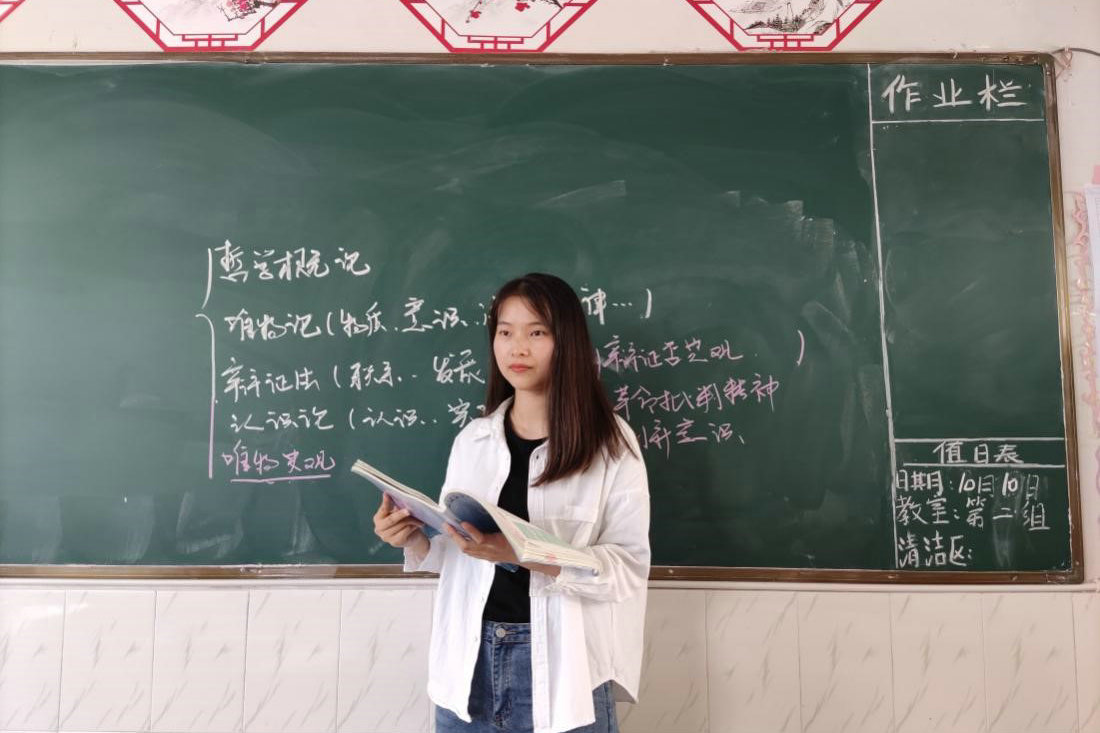 哲学概论
唯物论(物质.意识.律…)
辩证法(联系..发展 辩证否定观.)
革命批判精神
认识论(认识..实 新意识、
唯物史观
作业栏
值日表
日期:10月10日
教室:第二组
清洁区: